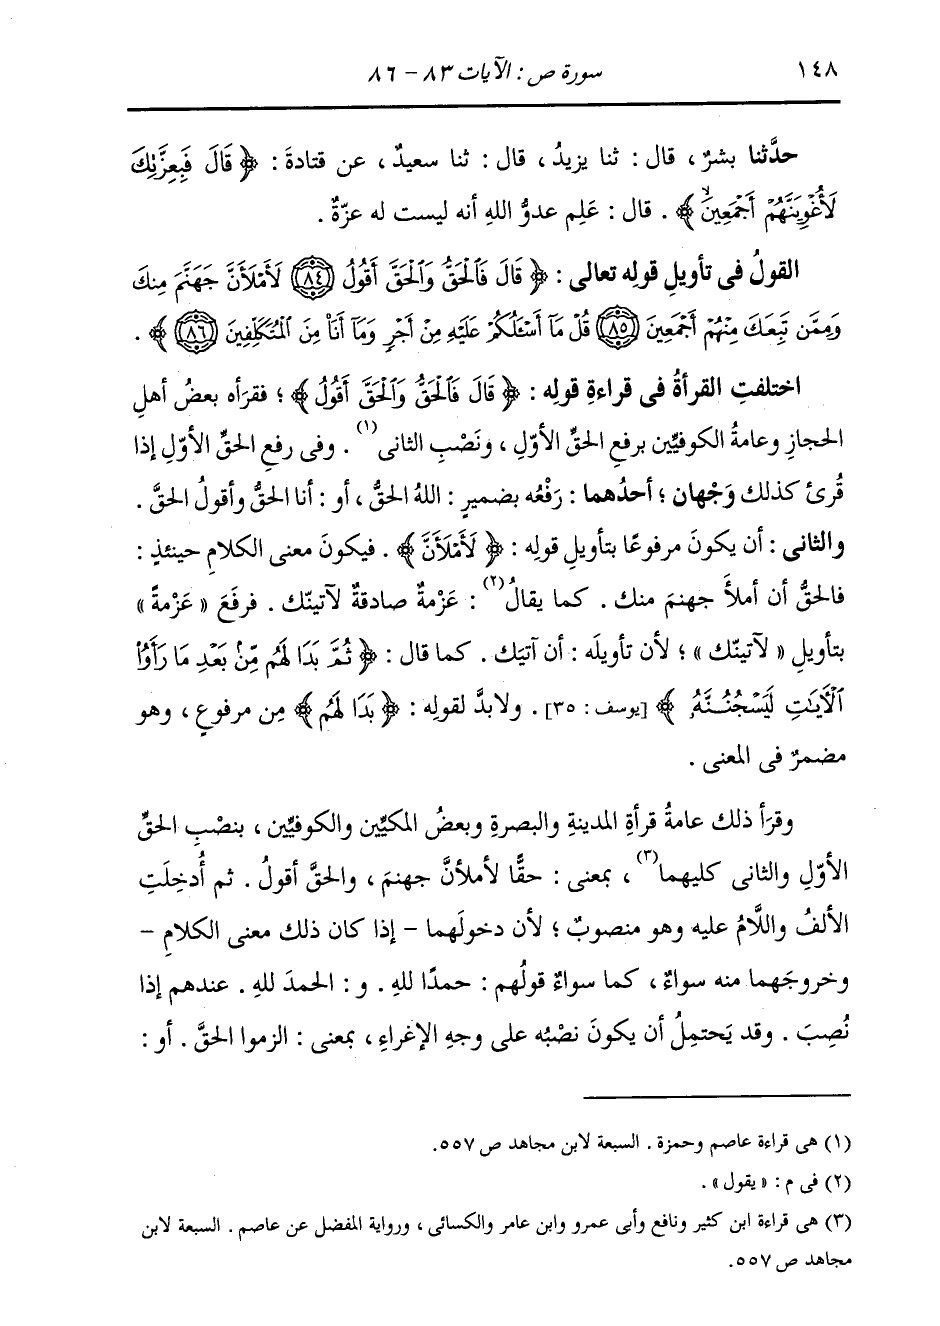 ١٤٨ سورة ص : الآيات ٨٣ - ٨٦
حدَّثنا بشرٌ ، قال : ثنا يزيدُ ، قال : ثنا سعيدٌ ، عن قتادةَ : ﴿ قَالَ فَبِعِزَّتِكَ
لَأُغْوِيَنَّهُمْ أَجْمَعِينَ ﴾ . قال : عَلِم عدوُّ اللهِ أنه ليست له عزّةٌ .
القولُ فى تأويلِ قولِه تعالى : ﴿ قَالَ فَالْحَقُّ وَالْحَقَّ أَقُولُ ٨٤ لَأَمْلَأَنَّ جَهَنَّمَ مِنكَ
وَمِمَّن تَبِعَكَ مِنْهُمْ أَجْمَعِينَ ٨٥ قُلْ مَا أَسْئَلُكُمْ عَلَيْهِ مِنْ أَجْرٍ وَمَا أَنَا مِنَ الْمُتَكَلِّفِينَ ٨٦ ﴾ .
اختلفتِ القرأةُ فى قراءةِ قولِه : ﴿ قَالَ فَالْحَقُّ وَالْحَقَّ أَقُولُ ﴾ ؛ فقرَأه بعضُ أهلِ
الحجازِ وعامةُ الكوفيِّين برفعِ الحقِّ الأوّلِ ، ونَصْبِ الثانى(١) . وفى رفعِ الحقِّ الأوّلِ إذا
قُرئ كذلك وَجْهان ؛ أحدُهما : رَفْعُه بضميرِ : اللهُ الحقُّ ، أو : أنا الحقُّ وأقولُ الحقَّ .
والثانى : أن يكونَ مرفوعًا بتأويلِ قولِه : ﴿ لَأَمْلَأَنَّ ﴾ . فيكونَ معنى الكلامِ حينئذٍ :
فالحقُّ أن أملأَ جهنمَ منك . كما يقالُ(٢) : عَزْمةٌ صادقةٌ لآتينّك . فرفَعَ « عَزْمةً »
بتأويلِ « لآتينّك » ؛ لأن تأويلَه : أن آتيَك . كما قال : ﴿ ثُمَّ بَدَا لَهُم مِّنْ بَعْدِ مَا رَأَوُا
الْآيَاتِ لَيَسْجُنُنَّهُ ﴾ [يوسف : ٣٥] . ولابدَّ لقولِه : ﴿ بَدَا لَهُم ﴾ مِن مرفوعٍ ، وهو
مضمرٌ فى المعنى .
وقرَأ ذلك عامةُ قرأةِ المدينةِ والبصرةِ وبعضُ المكيِّين والكوفيِّين ، بنصْبِ الحقِّ
الأوّلِ والثانى كليهما(٣) ، بمعنى : حقًّا لأملأنَّ جهنمَ ، والحقَّ أقولُ . ثم أُدخِلَتِ
الألفُ واللَّامُ عليه وهو منصوبٌ ؛ لأن دخولَهما - إذا كان ذلك معنى الكلامِ -
وخروجَهما منه سواءٌ ، كما سواءٌ قولُهم : حمدًا للهِ . و : الحمدَ للهِ . عندهم إذا
نُصِبَ . وقد يَحتمِلُ أن يكونَ نصْبُه على وجهِ الإغراءِ ، بمعنى : الزموا الحقَّ . أو :
(١) هى قراءة عاصم وحمزة . السبعة لابن مجاهد ص ٥٥٧.
(٢) فى م : « يقول » .
(٣) هى قراءة ابن كثير ونافع وأبى عمرو وابن عامر والكسائى ، ورواية المفضل عن عاصم . السبعة لابن
مجاهد ص ٥٥٧.